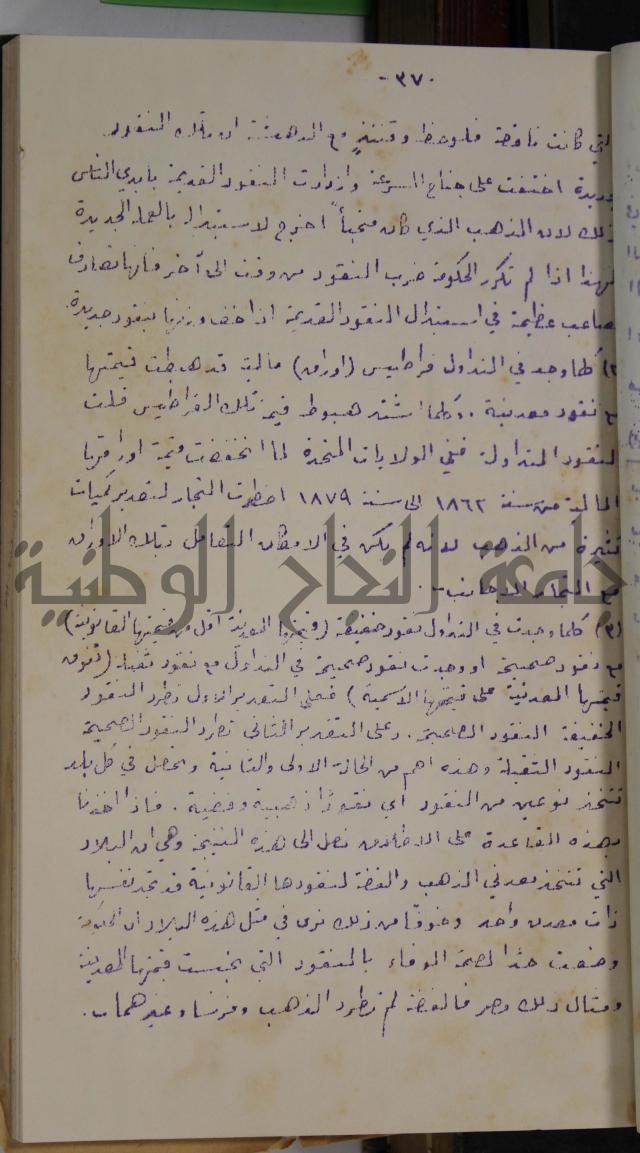 -٣٧٠
التي كانت ناقصة فلوحظ وقتئذٍ مع الدهشة ان تلك النقود
جديدة اختفت على جناح السرعة وازدادت النقود القديمة بايدي الناس
وذلك لان الذهب الذي كان مخبأ اخرج لاستبدال بالعملة الجديدة
لهذا اذا لم تكرر الحكومة ضرب النقود من وقت الى آخر فانها تصادف
مصاعب عظيمة في استبدال النقود القديمة اذا خف وزنها بنقود جديدة
(٢) كلما وجد في التداول قراطيس (اوراق) مالية قد هبطت قيمتها
مع نقود معدنية . وكلما اشتد هبوط قيمة تلك القراطيس قلت
النقود المتداولة ففي الولايات المتحدة لما انخفضت قيمة اوراقها
المالية من سنة ١٨٦٢ الى سنة ١٨٧٩ اضطرت التجار لتصدير كميات
كثيرة من الذهب لانه لم يكن في الامكان التعامل بتلك الاوراق
مع التجار الاجانب .
جامعة النجاح الوطنية
(٣) كلما وجدت في التداول نقود خفيفة (قيمتها المعدنية اقل من قيمتها القانونية)
مع نقود صحيحة او وجدت نقود صحيحة في التداول مع نقود ثقيلة (تفوق
قيمتها المعدنية على قيمتها الاسمية) فعلى التقدير الاول تطرد النقود
الخفيفة النقود الصحيحة . وعلى التقدير الثاني تطرد النقود الصحيحة
النقود الثقيلة وهذه اهم من الحالة الاولى والثانية وتحصل في كل بلد
تتخذ نوعين من النقود اي نقوداً ذهبية وفضية . فاذا اخذنا
بهذه القاعدة على الاطلاق نصل الى هذه النتيجة وهي ان البلاد
التي تتخذ معدني الذهب والفضة لنقودها القانونية قد تجد نفسها
ذات معدن واحد وخوفاً من ذلك نرى في مثل هذه البلاد ان الحكومة
وضعت حداً لصحة الوفاء بالنقود التي بخست قيمتها المعدنية
ومثال ذلك مصر فالفضة لم تطرد الذهب وفرنسا وغيرهما .